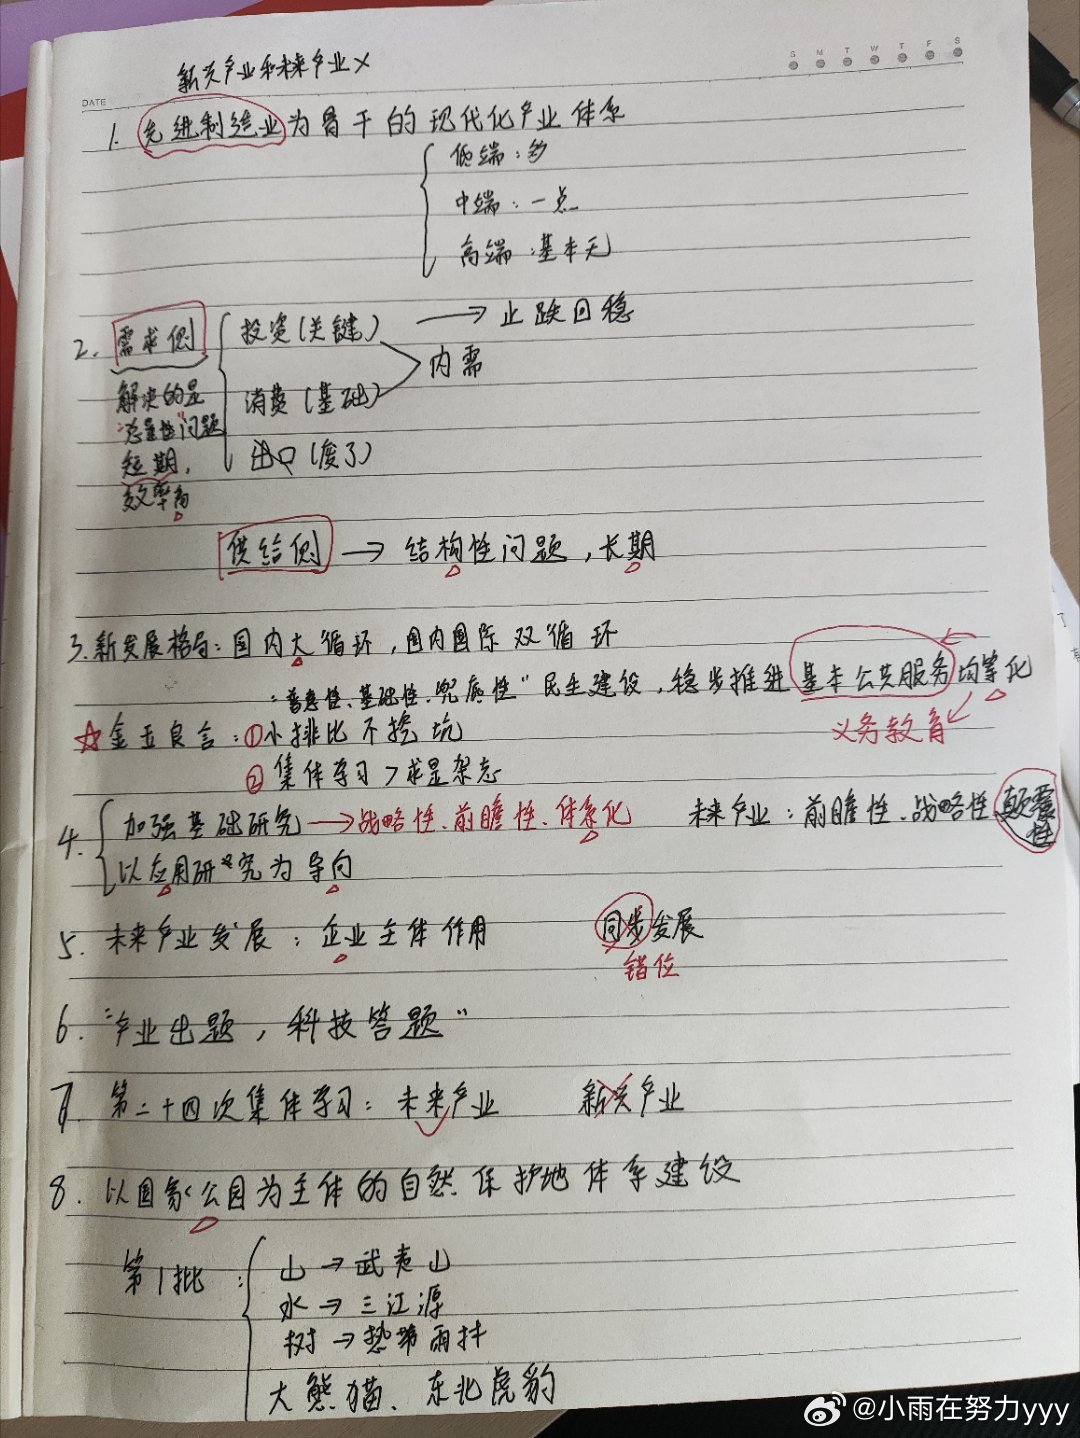 新兴产业和未来产业×
DATE
S M T W T F S
1. 先进制造业为骨干的现代化产业体系
低端：多
中端：一点
高端：基本无
2. 需求侧
投资(关键) → 止跌回稳
内需
消费(基础)
出口(废了)
解决的是
"总量性"问题
短期，
效率高
供给侧 → 结构性问题，长期
3.新发展格局：国内大循环，国内国际双循环
："普惠性、基础性、兜底性"民生建设，稳步推进基本公共服务均等化
义务教育
☆金玉良言：①小排比不挖坑
②集体学习>求是杂志
4. 加强基础研究→战略性、前瞻性、体系化
以应用研究为导向
未来产业：前瞻性、战略性、颠覆性
5. 未来产业发展：企业主体作用
同步发展
错位
6. "产业出题，科技答题"
7. 第二十四次集体学习：未来产业 新兴产业
8. 以国家公园为主体的自然保护地体系建设
第1批：
山→武夷山
水→三江源
树→热带雨林
大熊猫、东北虎豹
@小雨在努力yyy